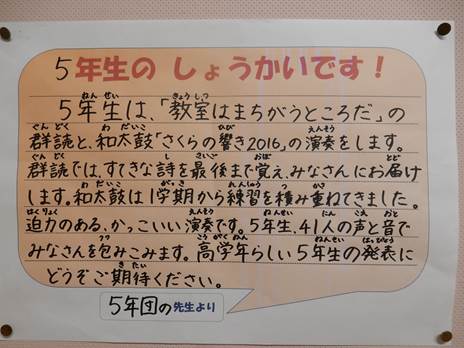 5年生の しょうかいです!
5年生は、「教室はまちがうところだ」の
群読と、和太鼓「さくらの響き2016」の演奏をします。
群読では、すてきな詩を最後まで覚え、みなさんにお届け
します。和太鼓は1学期から練習を積み重ねてきました。
迫力のある、かっこいい演奏です。5年生、41人の声と音で
みなさんを包みこみます。高学年らしい5年生の発表に
どうぞご期待ください。
5年団の先生より